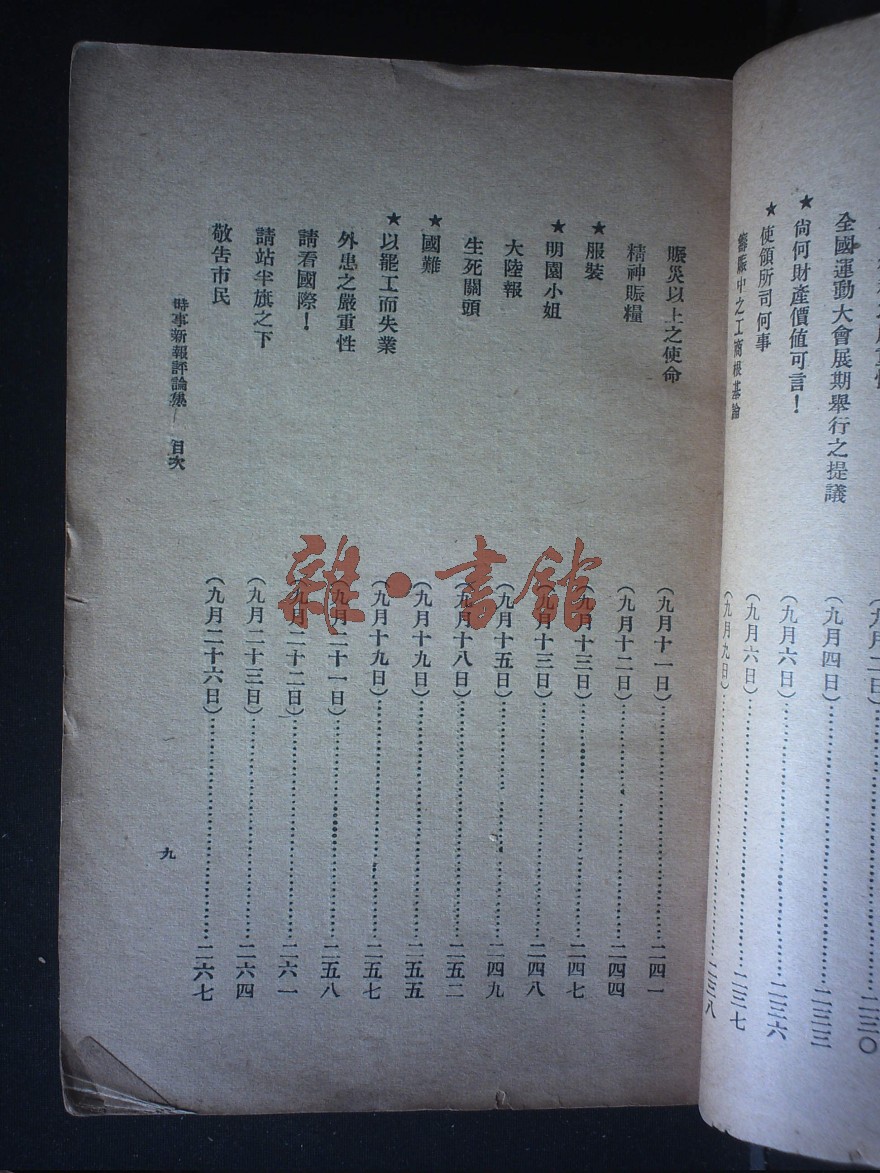 全國運動大會展期舉行之提議（九月四日）……二三三
★尙何財產價値可言！（九月六日）……二三六
★使領所司何事（九月六日）……二三七
籌賑中之工商根基論（九月九日）……二三八
賑災以上之使命（九月十一日）……二四一
精神賑糧（九月十二日）……二四四
★服裝（九月十三日）……二四七
★明園小姐（九月十三日）……二四八
大陸報（九月十五日）……二四九
生死關頭（九月十八日）……二五二
★國難（九月十九日）……二五五
★以罷工而失業（九月十九日）……二五七
外患之嚴重性（九月二十一日）……二五八
請看國際！（九月二十二日）……二六一
請站半旗之下（九月二十三日）……二六四
敬吿市民（九月二十六日）……二六七
時事新報評論集 目次
九
雜·書館